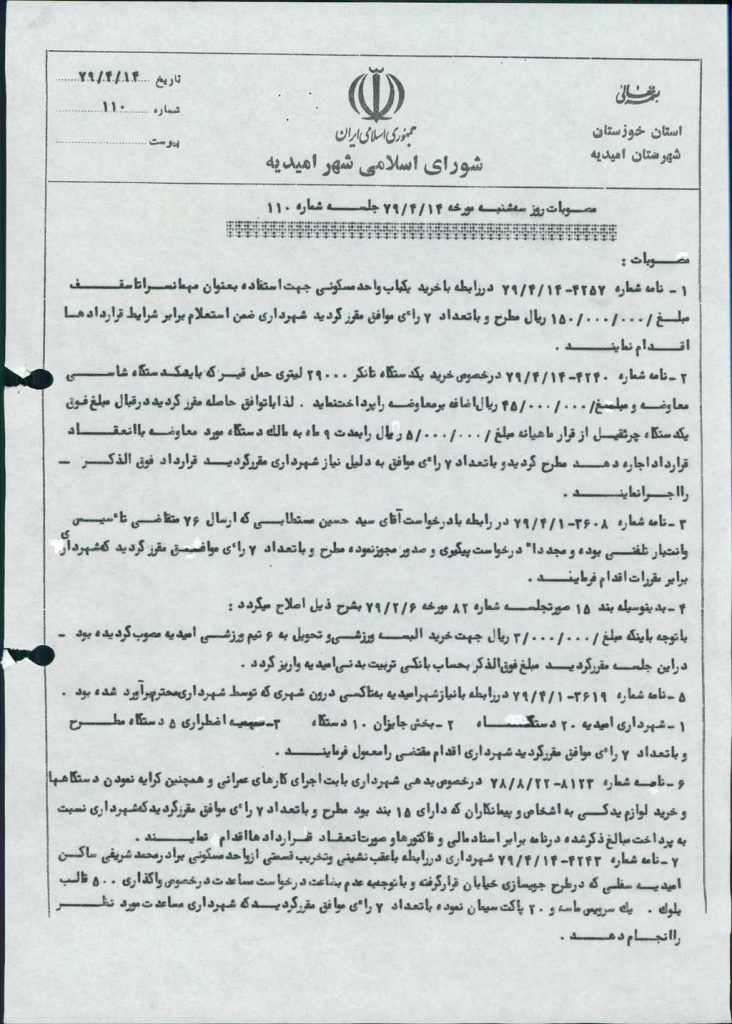 بسمه تعالی
استان خوزستان
شهرستان امیدیه
جمهوری اسلامی ایران
شورای اسلامی شهر امیدیه
تاریخ ۷۹/۴/۱۴
شماره ۱۱۰
پیوست
مصوبات روز سه‌شنبه مورخه ۷۹/۴/۱۴ جلسه شماره ۱۱۰
مصوبات :
۱ - نامه شماره ۴۲۵۷-۷۹/۴/۱۴ در رابطه با خرید یکباب واحد مسکونی جهت استفاده بعنوان مهمانسرا تا سقف
مبلغ /۱۵۰/۰۰۰/۰۰۰ ریال مطرح و با تعداد ۷ رای موافق مقرر گردید شهرداری ضمن استعلام برابر شرایط قراردادها
اقدام نمایند .
۲ - نامه شماره ۴۲۴۰-۷۹/۴/۱۴ در خصوص خرید یکدستگاه تانکر ۲۹۰۰۰ لیتری حمل قیر که با یکدستگاه شاسی
معاوضه و مبلغ /۴۵/۰۰۰/۰۰۰ ریال اضافه بر معاوضه را پرداخت نماید . لذا با توافق حاصله مقرر گردید در قبال مبلغ فوق
یکدستگاه جرثقیل از قرار ماهیانه مبلغ /۵/۰۰۰/۰۰۰ ریال را بمدت ۹ ماه به مالک دستگاه مورد معاوضه با انعقاد
قرارداد اجاره دهد مطرح گردید و با تعداد ۷ رای موافق به دلیل نیاز شهرداری مقرر گردید قرارداد فوق الذکر -
را اجرا نمایند .
۳ - نامه شماره ۳۶۰۸-۷۹/۴/۱ در رابطه با درخواست آقای سید حسین مستطابی که از سال ۷۶ متقاضی تاسیس
وانتبار تلفنی بوده و مجددا" درخواست پیگیری و صدور مجوز نموده مطرح و با تعداد ۷ رای موافق مقرر گردید که شهرداری
برابر مقررات اقدام فرمایند .
۴ - بدینوسیله بند ۱۵ صورتجلسه شماره ۸۲ مورخه ۷۹/۲/۶ بشرح ذیل اصلاح میگردد :
با توجه باینکه مبلغ /۳/۰۰۰/۰۰۰ ریال جهت خرید البسه ورزشی و تحویل به ۶ تیم ورزشی امیدیه مصوب گردیده بود -
در این جلسه مقرر گردید مبلغ فوق الذکر بحساب بانکی تربیت بدنی امیدیه واریز گردد .
۵ - نامه شماره ۳۶۱۹-۷۹/۴/۱ در رابطه با نیاز شهر امیدیه به تاکسی درون شهری که توسط شهرداری محترم برآورد شده بود .
۱ - شهرداری امیدیه ۲۰ دستگاه ۲ - بخش جایزان ۱۰ دستگاه ۳ - سهمیه اضطراری ۵ دستگاه مطرح
و با تعداد ۷ رای موافق مقرر گردید شهرداری اقدام مقتضی را معمول فرمایند .
۶ - نامه شماره ۸۱۲۳-۷۸/۸/۲۲ در خصوص بدهی شهرداری بابت اجرای کارهای عمرانی و همچنین کرایه نمودن دستگاهها
و خرید لوازم یدکی به اشخاص و پیمانکاران که دارای ۱۵ بند بود مطرح و با تعداد ۷ رای موافق مقرر گردید که شهرداری نسبت
به پرداخت مبالغ ذکر شده در نامه برابر اسناد مالی و فاکتورها و صورت انعقاد قراردادها اقدام نمایند .
۷ - نامه شماره ۴۲۴۳-۷۹/۴/۱۴ شهرداری در رابطه با عقب نشینی و تخریب قسمتی از واحد مسکونی برادر محمد شریفی ساکن
امیدیه سفلی که در طرح جویسازی خیابان قرار گرفته و با توجه به عدم بضاعت درخواست مساعدت در خصوص واگذاری ۵۰۰ قالب
بلوک . یک سرویس ماسه و ۲۰ پاکت سیمان نموده با تعداد ۷ رای موافق مقرر گردید که شهرداری مساعدت مورد نظر
را انجام دهد .